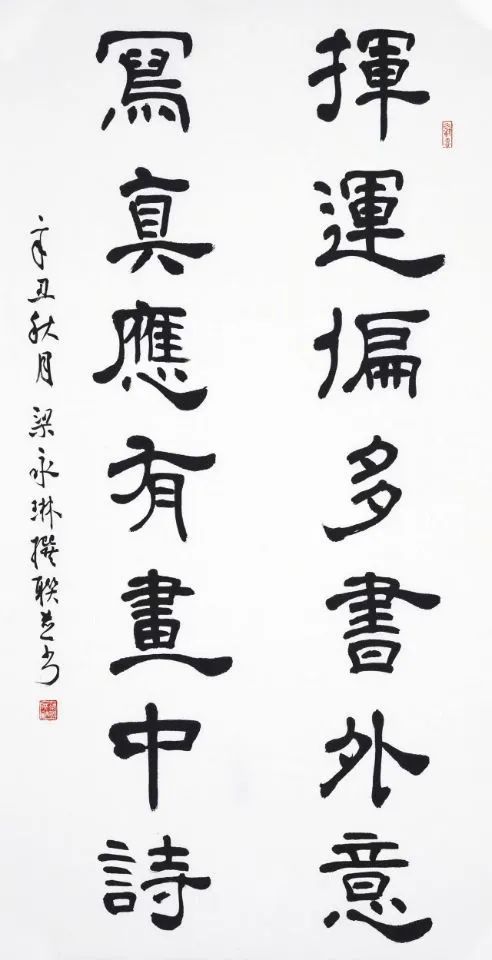 揮運偏多書外意
寫真應有畫中詩
辛丑秋月梁永琳撰聯並書